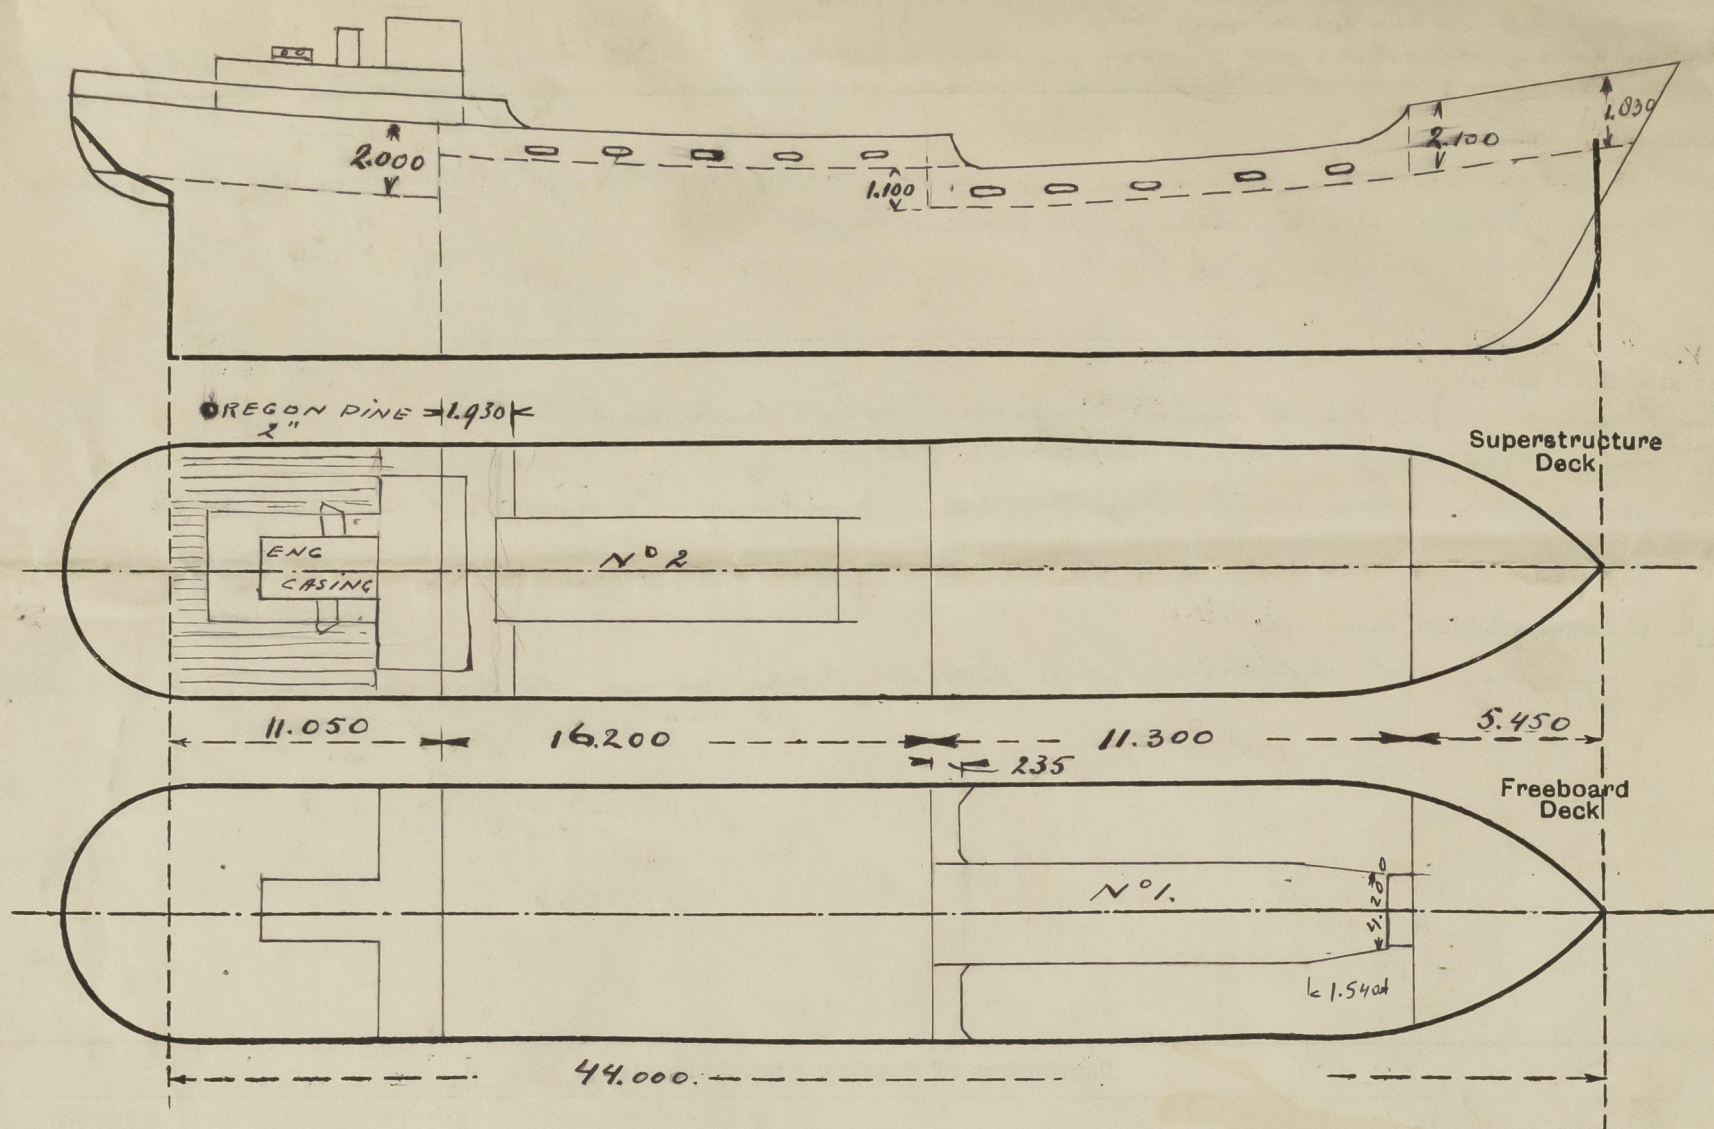 1.830
2.100
2.000
1.100
OREGON PINE 1.930
2"
Superstructure
Deck
ENG
CASING
Nº 2
11.050 16.200 11.300 5.450
235
Freeboard
Deck
Nº 1.
4.200
1.540
44.000.